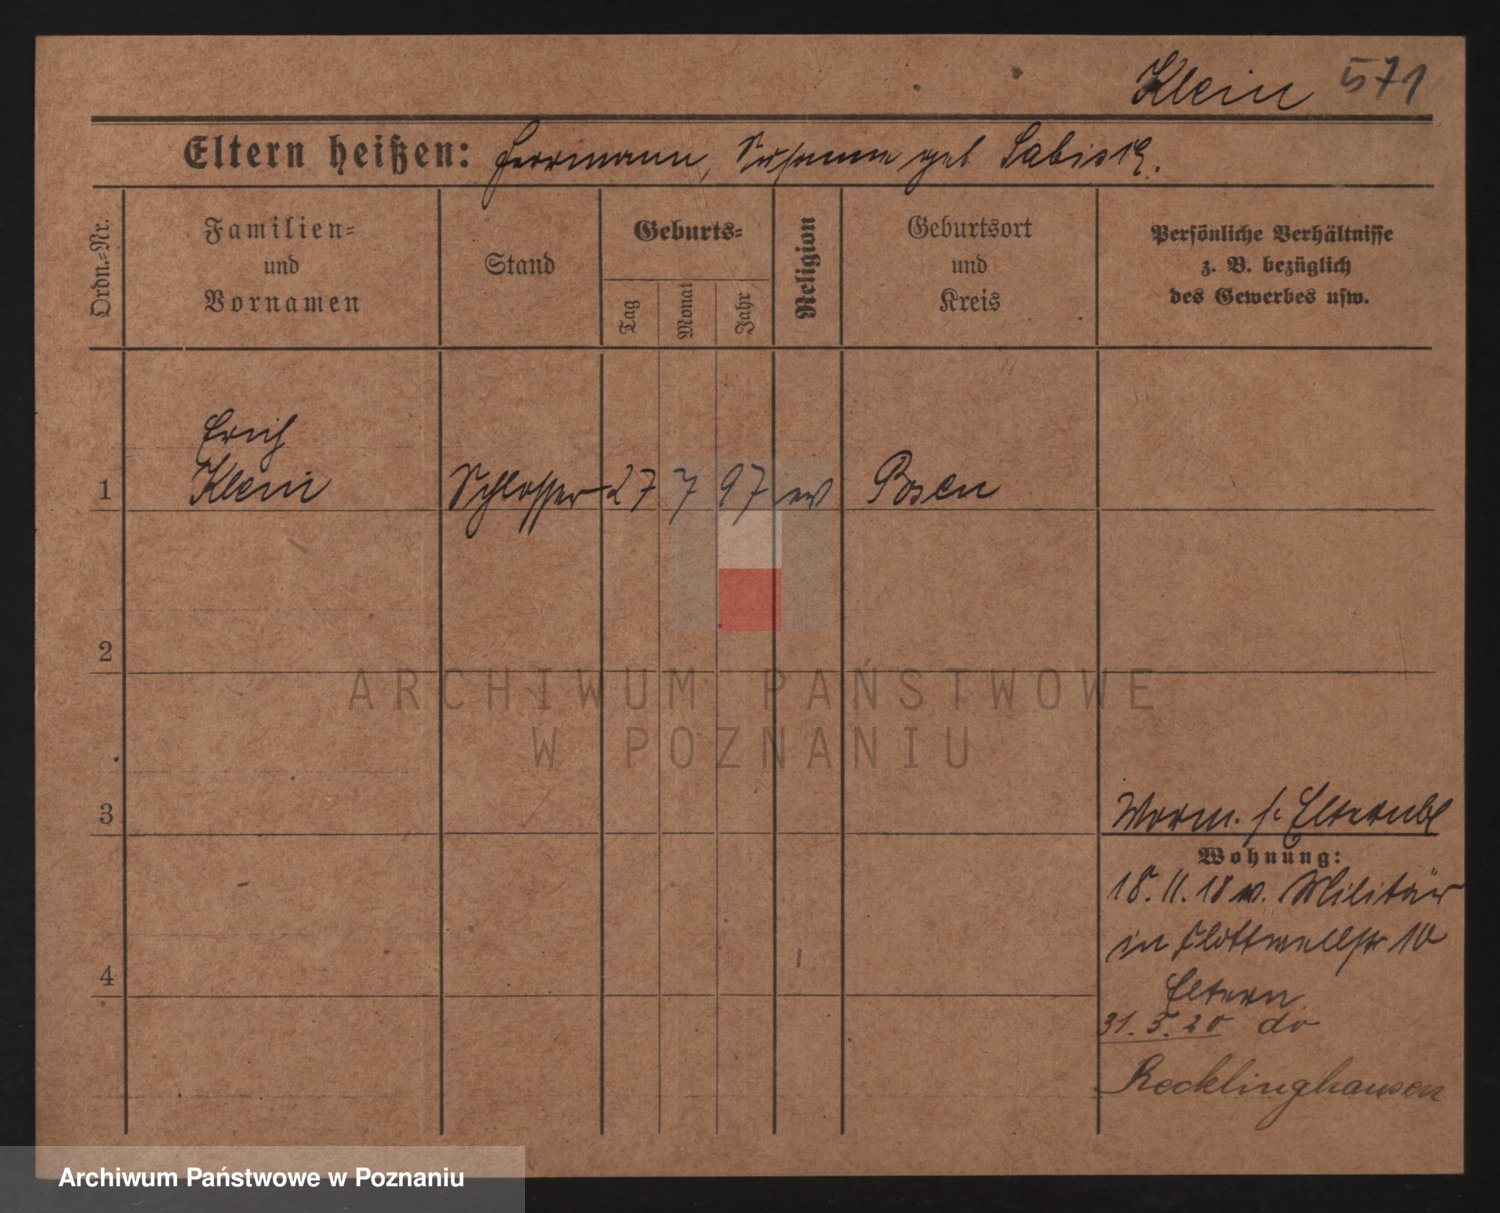 Klein 571
Eltern heißen: Herrmann, Susanna geb Sabisch.
Ordn.-Nr.
Familien-
und
Vornamen
Stand
Geburts-
Tag
Monat
Jahr
Religion
Geburtsort
und
Kreis
Persönliche Verhältnisse
z. B. bezüglich
des Gewerbes usw.
Erich
1 Klein Schlosser 27 7 97 ev Posen
2
ARCHIWUM PAŃSTWOWE
W POZNANIU
3
Vorm. s. Elternbl
Wohnung:
18.11.18 v. Militär
in Flottwellstr 10
4
Eltern
31.5.20 do
Recklinghausen
Archiwum Państwowe w Poznaniu